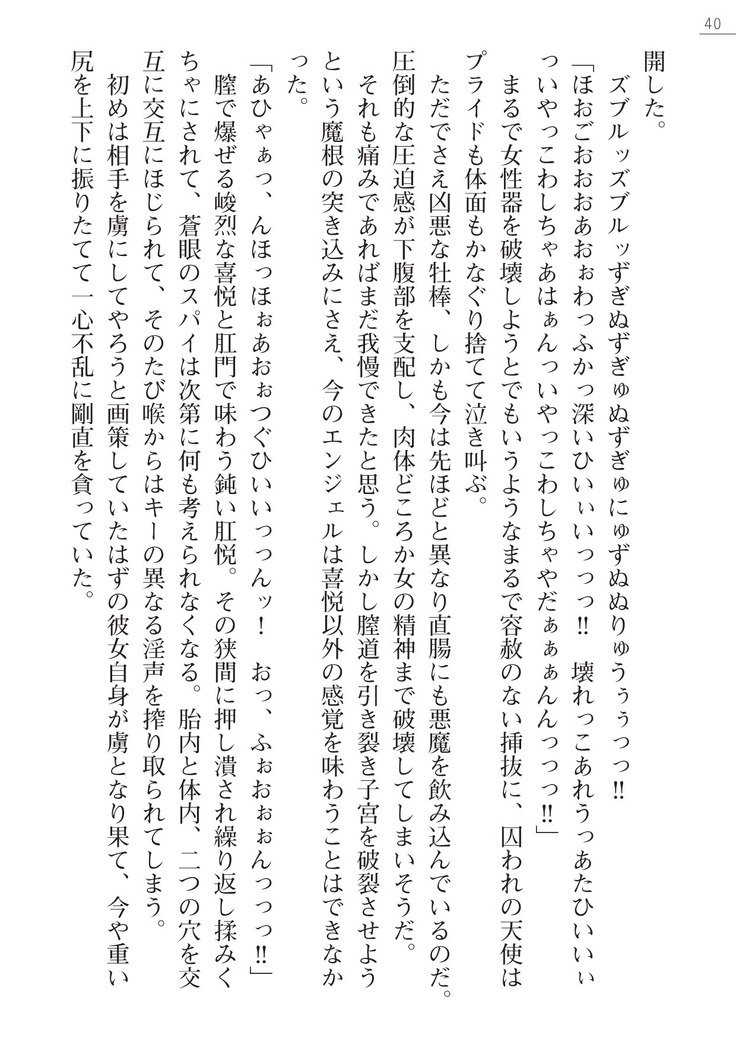 40
開した。
ズブルッズブルッずぎぬずぎゅぬずぎゅにゅずぬぬりゅうぅぅっっ‼
「ほおごおおおあおぉわっふかっ深いひいぃいっっっ‼　壊れっこあれうっあたひいいぃ
っいやっこわしちゃあはぁんっいやっこわしちゃやだぁぁぁんんっっっ‼」
まるで女性器を破壊しようとでもいうようなまるで容赦のない挿抜に、囚われの天使は
プライドも体面もかなぐり捨てて泣き叫ぶ。
ただでさえ凶悪な牡棒、しかも今は先ほどと異なり直腸にも悪魔を飲み込んでいるのだ。
圧倒的な圧迫感が下腹部を支配し、肉体どころか女の精神まで破壊してしまいそうだ。
それも痛みであればまだ我慢できたと思う。しかし膣道を引き裂き子宮を破裂させよう
という魔根の突き込みにさえ、今のエンジェルは喜悦以外の感覚を味わうことはできなか
った。
「あひゃぁっ、んほっほぉあおぉつぐひいいっっんッ！　おっ、ふぉおぉぉんっっっ‼」
膣で爆ぜる峻烈な喜悦と肛門で味わう鈍い肛悦。その狭間に押し潰され繰り返し揉みく
ちゃにされて、蒼眼のスパイは次第に何も考えられなくなる。胎内と体内、二つの穴を交
互に交互にほじられて、そのたび喉からはキーの異なる淫声を搾り取られてしまう。
初めは相手を虜にしてやろうと画策していたはずの彼女自身が虜となり果て、今や重い
尻を上下に振りたてて一心不乱に剛直を貪っていた。